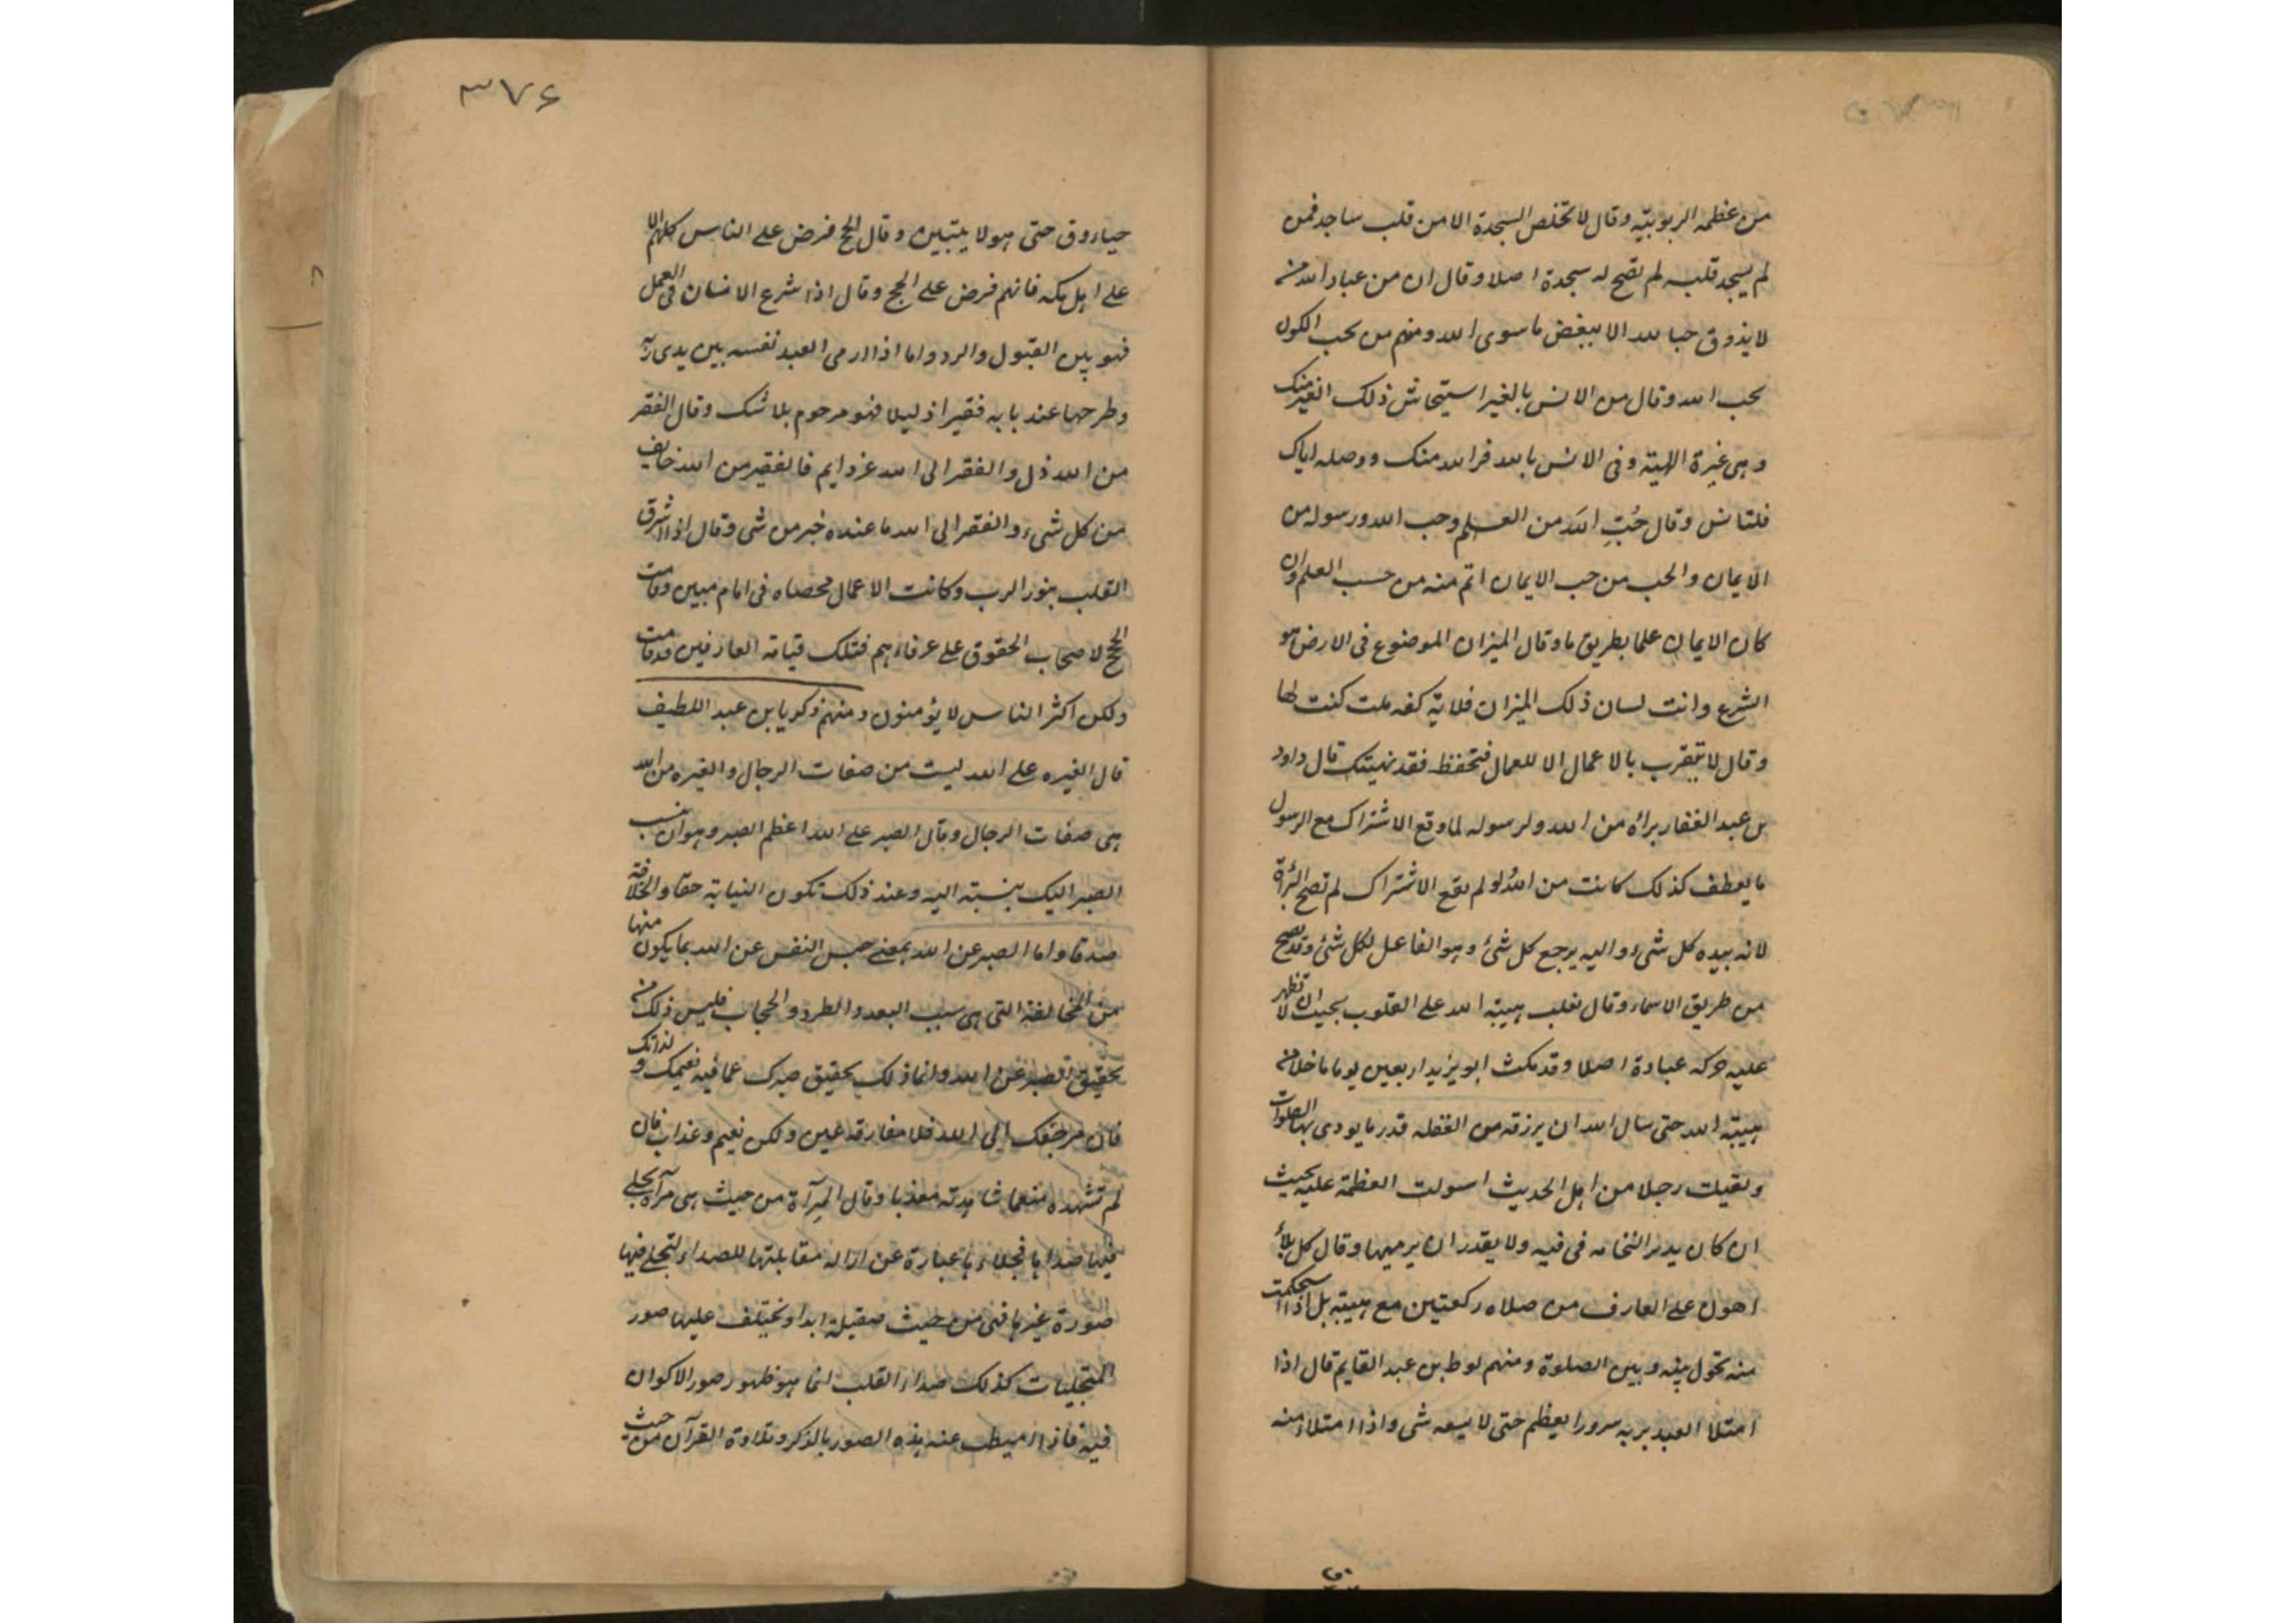 من عظمه الربوبيّه وقال لا تخلص السجدة الا من قلب ساجد فمن
لم يسجد قلبه لم تصح له سجدة اصلا وقال ان من عباد الله من
لا يذوق حبا لله الا ببغض ما سوى الله ومنهم من يحب الكون
بحب الله وقال من الانس بالغير استيحاش ذلك الغير منك
وهى غيرة الهيته وفى الانس بالله فر الله منك ووصله اياك
وقال حُبّ الله من العلم وحب الله ورسوله من
الايمان والحب من حب الايمان اتم منه من حسب العلم وان
كان الايمان علما بطريق ما وقال الميزان الموضوع فى الارض هو
الشرع وانت لسان ذلك الميزان فلايّة كفه ملت كنت لها
وقال لا تتقرب بالاعمال الا للعمال فتحفظ فقد نهيتك قال داود
بن عبد الغفار براة من الله ولرسوله لما وقع الاشتراك مع الرسول
بالعطف كذلك كانت من الله ولو لم يقع الاشتراك لم تصح البراة
لانه بيده كل شىء واليه يرجع كل شئ وهو الفاعل لكل شئ وقد تصح
من طريق الاسماء وقال تغلب هيبة الله على القلوب بحيث ان لا تظهر
عليه حركه عبادة اصلا وقد مكث ابو يزيد اربعين يوما ما خلا من
هيبة الله حتى سال الله ان يرزقه من الغفله قدر ما يودى بها الصلوات
ولقيت رجلا من اهل الحديث استولت العظمة عليه بحيث
ان كان يدير النخامه فى فيه ولا يقدر ان يرميها وقال كل بلاء
اهون على العارف من صلاه ركعتين مع هيبته بل اذا استحكمت
منه تحول بينه وبين الصلوة ومنهم لوط بن عبد القايم قال اذا
امتلا العبد بربه سرورا يعظم حتى لا يسعه شى واذا امتلاء منه
٣٧۶
حياء وق حتى هو لا يتبين وقال الحج فرض على الناس كلهم الا
على اهل مكه فانهم فرض على الحج وقال اذا شرع الانسان فى العمل
فهو بين القبول والرد واما اذا ارمى العبد نفسه بين يدى ربّه
وطرحها عند بابه فقيرا ذليلا فهو مرحوم بلا شك وقال الفقر
من الله ذل والفقر الى الله عز دايم فالفقير من الله خايف
من كل شىء والفقر الى الله ما عنده خبر من شى وقال اذا اشرق
القلب بنور الرب وكانت الاعمال محصاه فى امام مبين وقامت
الحجج لاصحاب الحقوق على عرفاءهم فتلك قيامة العارفين قد قامت
ولكن اكثر الناس لا يؤمنون ومنهم زكريا بن عبد اللطيف
قال الغيره على الله ليست من صفات الرجال والغيره من الله
هى صفات الرجال وقال الصبر على الله اعظم الصبر وهو ان ينسب
الصبر اليك بنسبته اليه وعند ذلك تكون النيابة حقا والخلافة
صدقا واما الصبر عن الله بمعنى حبس النفس عن الله بما يكون منها
من المخالفة التى هى سبب البعد والطرد والحجاب فليس ذلك من
تحقيق الصبر عن الله وانما ذلك تحقيق صبرك عما فيه نعيمك ولذاتك
فان مرجعك الى الله فلا مفارقه عين ولكن نعيم وعذاب فان
لم تشهده منعما شاهدته معذبا وقال المرآة من حيث هى مرآة يجلى
فيها صداها فجلاءها عبارة عن ازاله مقابلتها للصداء لتجلى فيها
صورة غيرها فهى من حيث صقيلة ابدا وتختلف عليها صور
المتجليات كذلك صداء القلب انما هو ظهور صور الاكوان
فيه فاذا اميطت عنه هذه الصور بالذكر وتلاوة القرآن من حيث